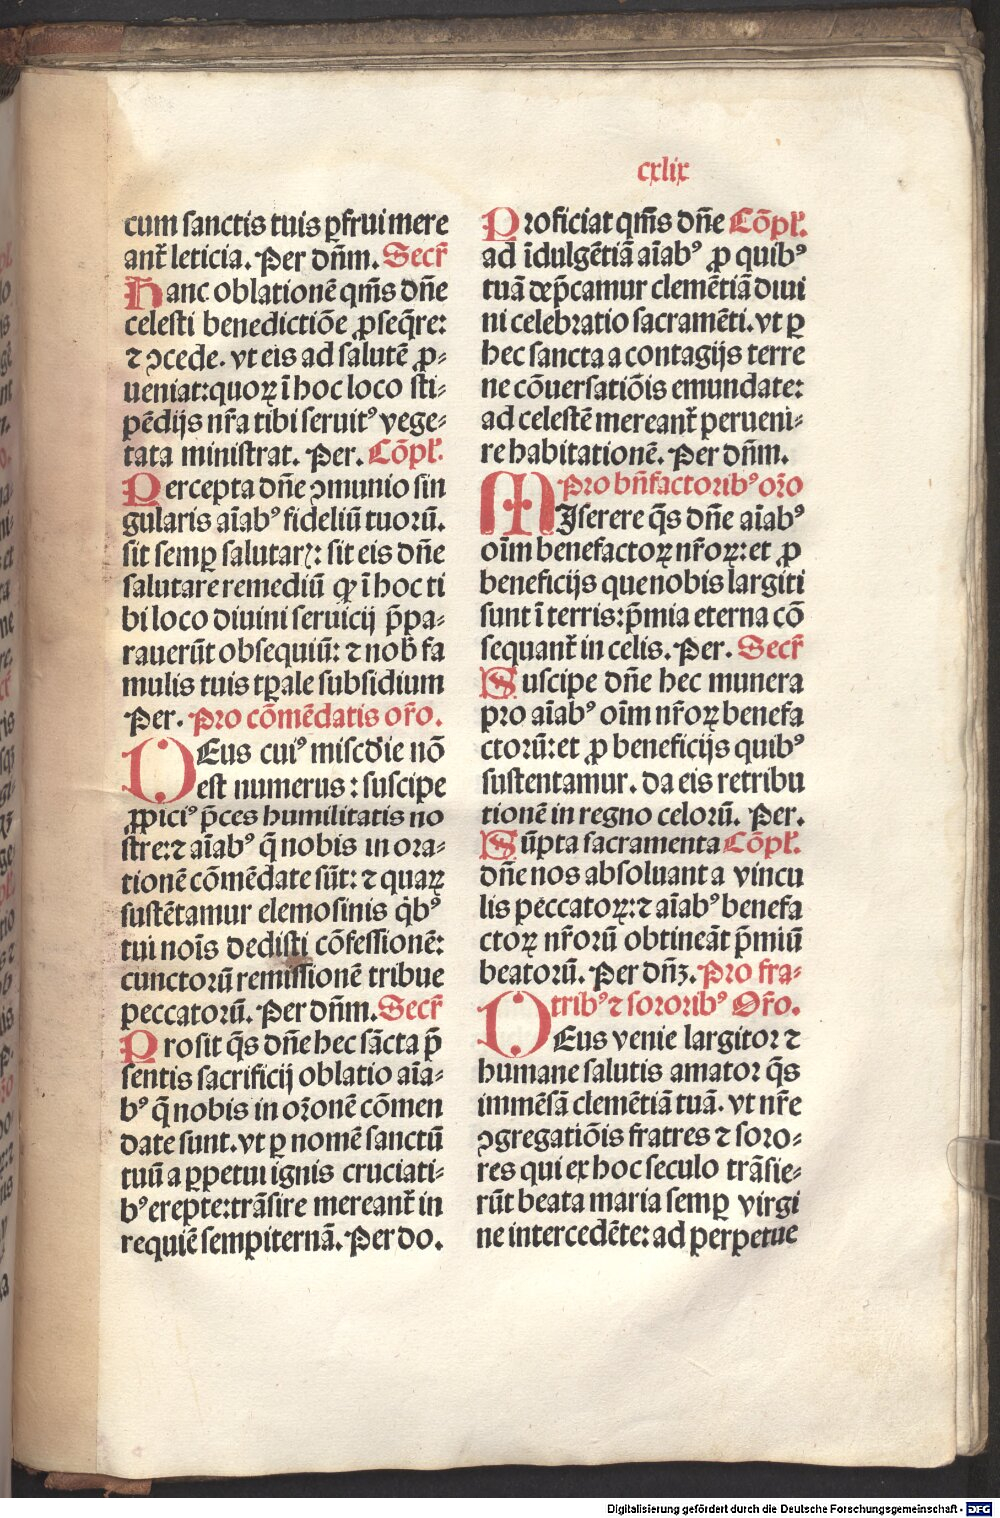 cxlix
cum sanctis tuis ꝑfrui mere
ant̃ leticia. Per dñm. Secr̃
Hanc oblationẽ qm̃s dñe
celesti benedictiõe ꝓseq̃re:
⁊ ꝯcede. vt eis ad salutẽ ꝓ⸗
ueniat: quoꝝ ĩ hoc loco sti⸗
pẽdijs nr̃a tibi seruitꝰ vege⸗
tata ministrat. Per. Cõpl̃.
Percepta dñe ꝯmunio sin
gularis aĩabꝰ fideliũ tuorũ.
sit semꝑ salutarꝭ: sit eis dñe
salutare remediũ qꝛ ĩ hoc ti
bi loco diuini seruicij p̃pa⸗
rauerũt obsequiũ: ⁊ nob̃ fa
mulis tuis tꝑale subsidium
Per. Pro cõmẽdatis or̃o.
DEus cuiꝰ miscd̃ie nõ
est numerus: suscipe
ꝓpiciꝰ p̃ces humilitatis no
stre: ⁊ aĩabꝰ q̃ nobis in ora⸗
tionẽ cõmẽdate sũt: ⁊ quaꝝ
sustẽtamur elemosinis q̇bꝰ
tui noĩs dedisti cõfessionẽ:
cunctorũ remissionẽ tribue
peccatorũ. Per dñm. Secr̃
Prosit q̃s dñe hec sãcta p̃
sentis sacrificij oblatio aĩa⸗
bꝰ q̃ nobis in oꝛonẽ cõmen
date sunt. vt ꝑ nomẽ sanctũ
tuũ a ꝑpetui ignis cruciati⸗
bꝰ erepte: trãsire mereant̃ in
requiẽ sempiternã. Per do.
Proficiat qm̃s dñe Cõpl̃.
ad ĩdulgẽtiã aĩabꝰ ꝓ quibꝰ
tuã dep̃camur clemẽtiã diui
ni celebꝛatio sacramẽti. vt ꝑ
hec sancta a contagijs terre
ne cõuersatiõis emundate:
ad celestẽ mereant̃ perueni⸗
re habitationẽ. Per dñm.
Pro bñfactoribꝰ oꝛo
MIserere q̃s dñe aĩabꝰ
oĩm benefactoꝝ nr̃oꝝ: et ꝓ
beneficijs que nobis largiti
sunt ĩ terris: p̃mia eterna cõ
sequant̃ in celis. Per. Secr̃
Suscipe dñe hec munera
pro aĩabꝰ oĩm nr̃oꝝ benefa
ctorũ: et ꝓ beneficijs quibꝰ
sustentamur. da eis retribu
tionẽ in regno celorũ. Per.
Sũpta sacramenta Cõpl̃.
dñe nos absoluant a vincu
lis peccatoꝝ: ⁊ aĩabꝰ benefa
ctoꝝ nr̃orũ obtineãt p̃miũ
beatorũ. Per dñꝫ. Pro fra⸗
tribꝰ ⁊ sororibꝰ Or̃o.
DEus venie largitoꝛ ⁊
humane salutis amatoꝛ q̃s
immẽsã clemẽtiã tuã. vt nr̃e
ꝯgregatiõis fratres ⁊ soꝛo⸗
res qui ex hoc seculo trãsie⸗
rũt beata maria semꝑ virgi
ne intercedẽte: ad perpetue
Digitalisierung gefördert durch die Deutsche Forschungsgemeinschaft - DFG